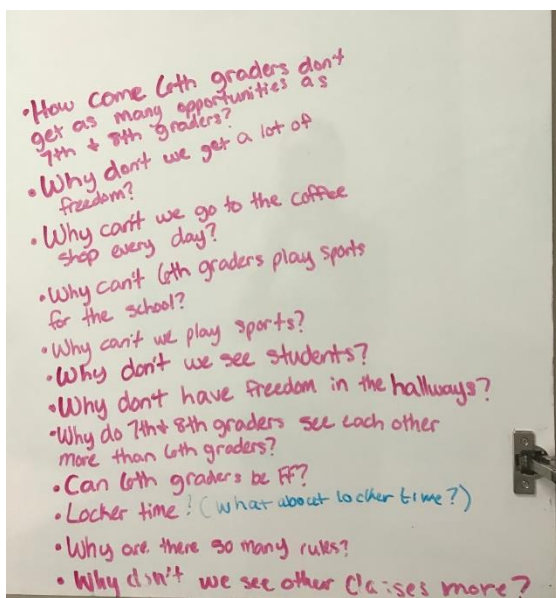 •How come 6th graders don't
get as many opportunities as
7th + 8th graders?
• Why don't we get a lot of
freedom?
• Why can't we go to the coffee
shop every day?
• Why can't 6th graders play sports
for the school?
• Why can't we play sports?
• Why don't we see students?
• Why don't have freedom in the hallways?
• Why do 7th + 8th graders see each other
more than 6th graders?
• Can 6th graders be FF?
• Locker time? (What about locker time?)
• Why are there so many rules?
• Why don't we see other classes more?